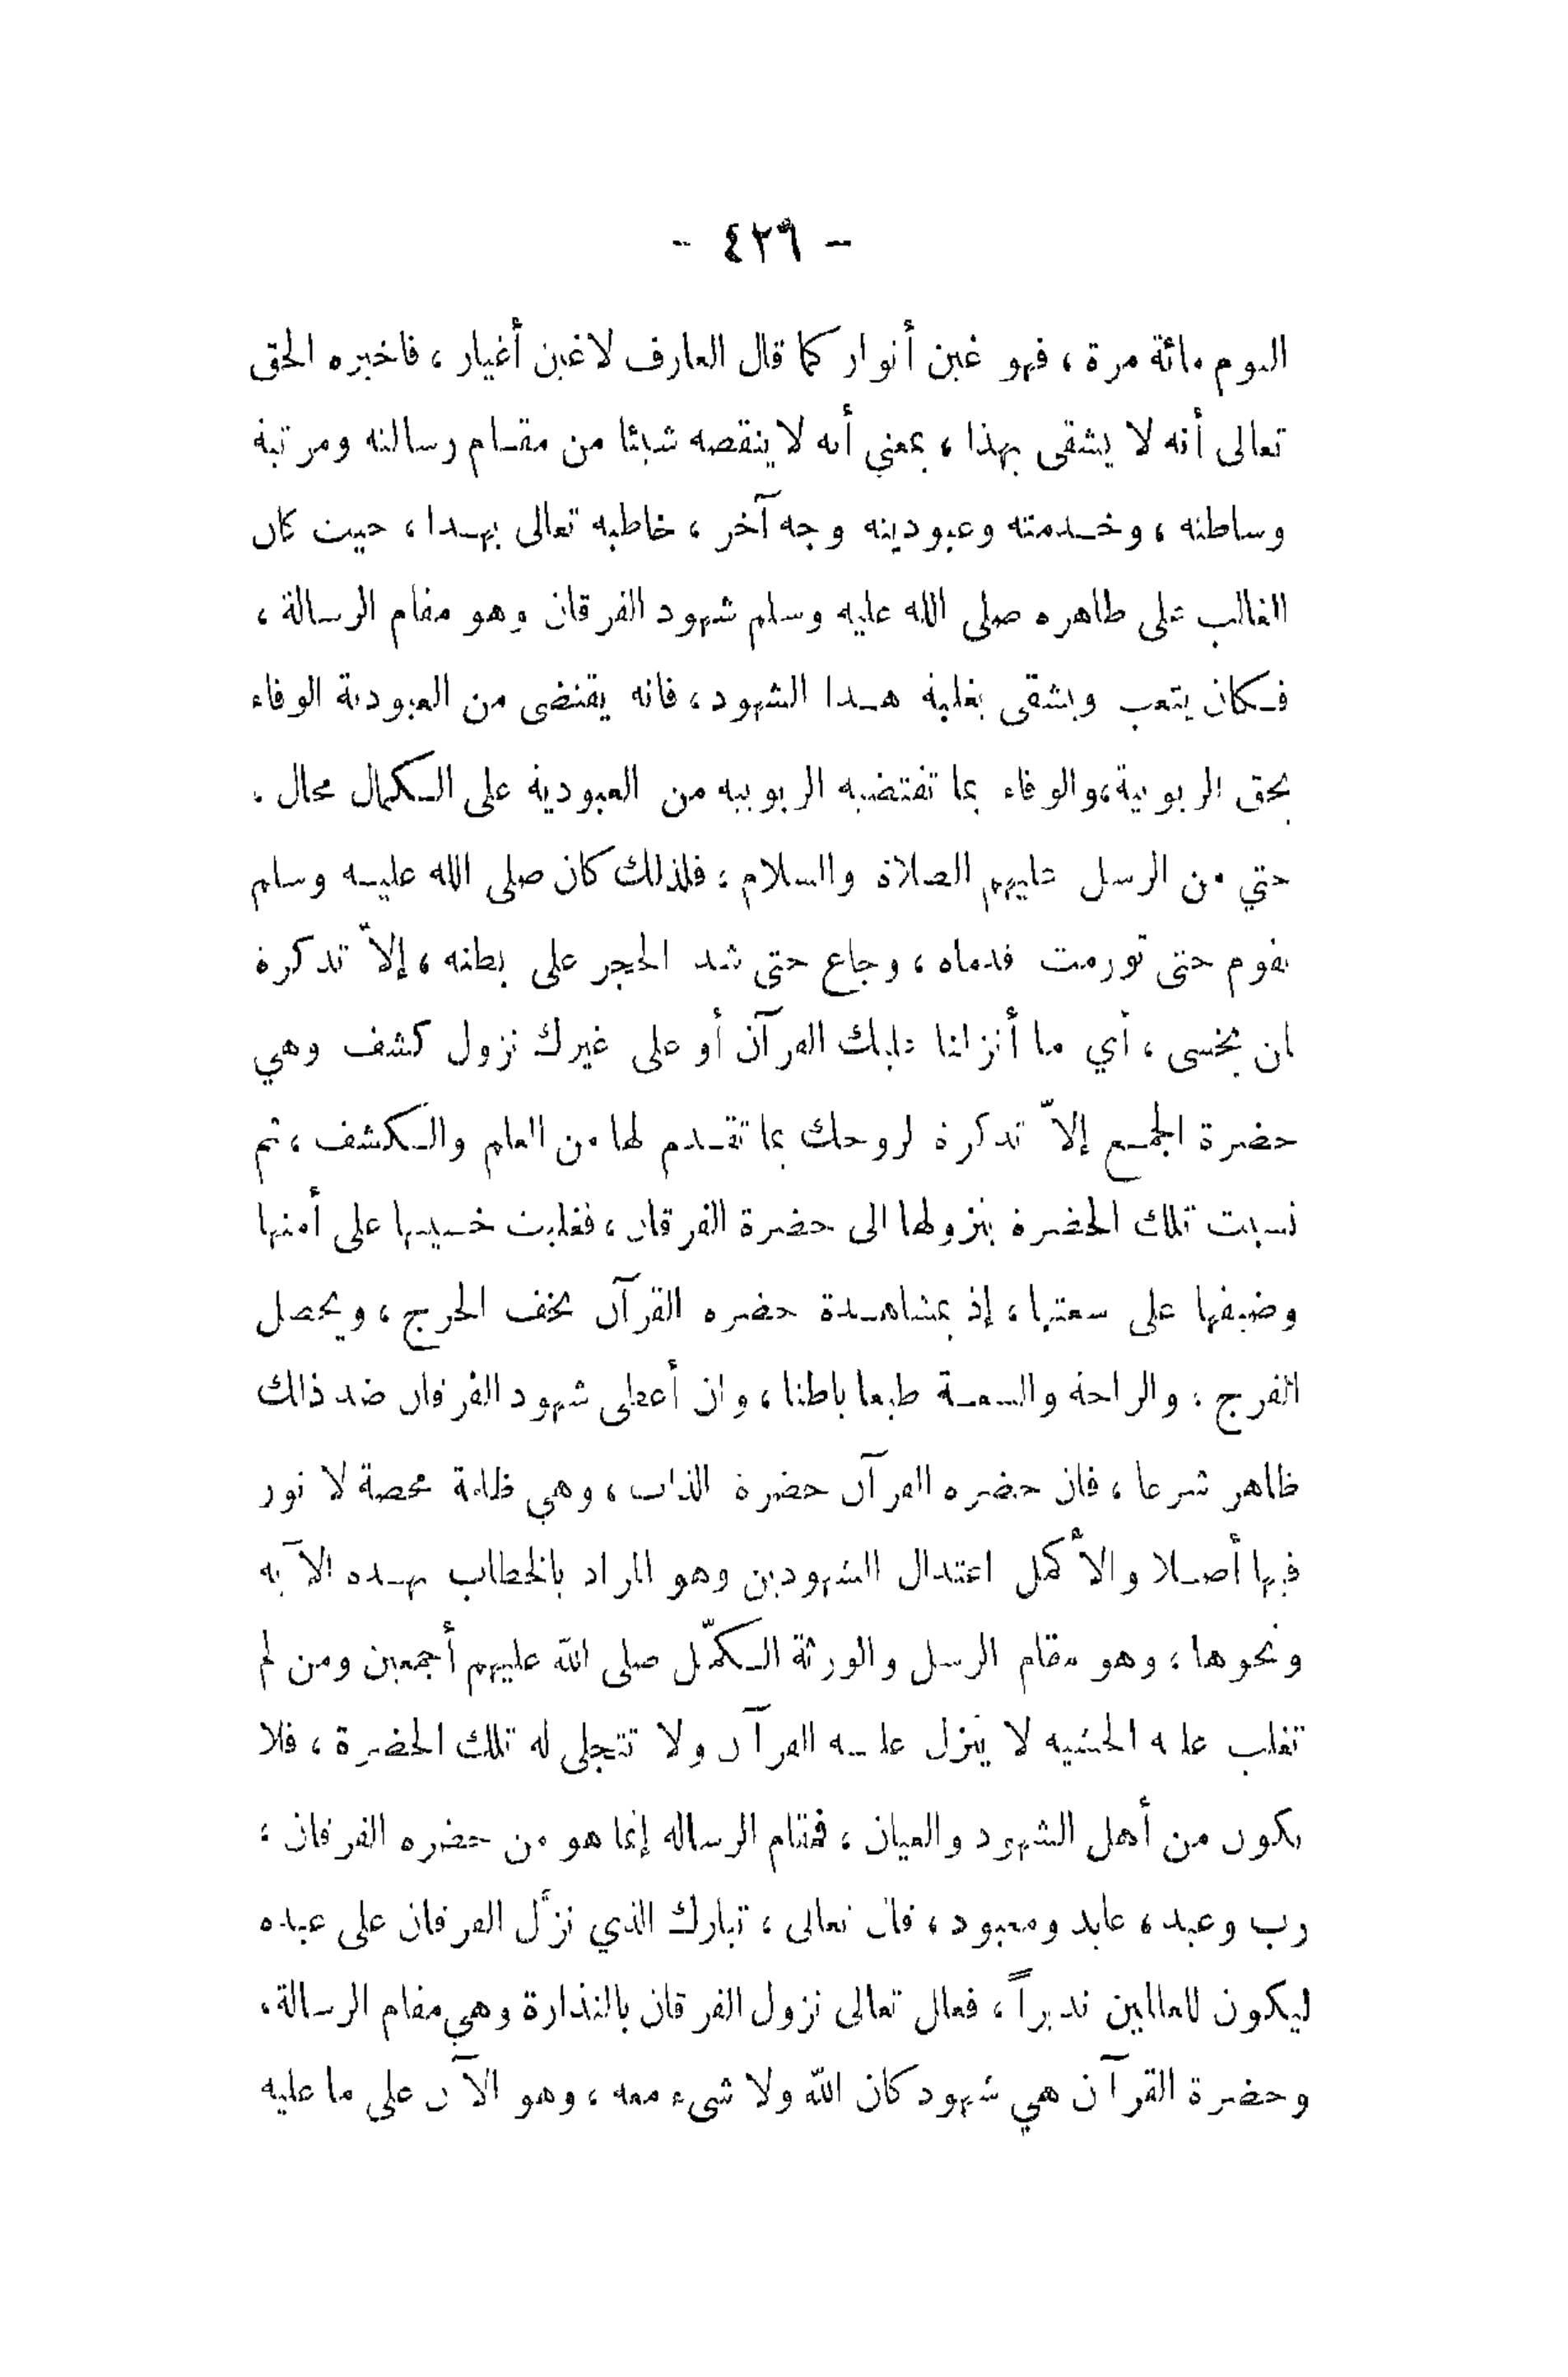 - ٤٢٩ -
اليوم مائة مرة ، فهو غين أنوار كما قال العارف لاغين أغيار ، فاخبره الحق
تعالى أنه لا يشقى بهذا ، بمعني أنه لا ينقصه شيئا من مقام رسالته ومرتبة
وساطته ، وخدمته وعبوديته وجه آخر ، خاطبه تعالى بهذا ، حيث كان
الغالب على ظاهره صلى الله عليه وسلم شهود الفرقان وهو مقام الرسالة ،
فكان يتعب ويشقى بغلبة هذا الشهود ، فانه يقتضى من العبودية الوفاء
بحق الربوبية ، والوفاء بما تقتضيه الربوبية من العبودية على الكمال محال .
حتي من الرسل عليهم الصلاة والسلام ، فلذلك كان صلى الله عليه وسلم
يقوم حتى تورمت قدماه ، وجاع حتى شد الحجر على بطنه ، إلاّ تذكرة
لمن يخشى ، أي ما أنزلنا عليك القرآن أو على غيرك نزول كشف وهي
حضرة الجمع إلاّ تذكرة لروحك بما تقدم لها من العلم والكشف ، ثم
نسيت تلك الحضرة بنزولها الى حضرة الفرقان ، فغلبت خشيتها على أمنها
وضيقها على سعتها ، إذ بمشاهدة حضرة القرآن يخف الحرج ، ويحصل
الفرج ، والراحة والسعة طبعا باطنا ، وان أعطى شهود الفرقان ضد ذلك
ظاهر شرعا ، فان حضرة القرآن حضرة الذات ، وهي ظلمة محضة لا نور
فيها أصلا والأكمل اعتدال الشهودين وهو المراد بالخطاب بهذه الآية
ونحوها ، وهو مقام الرسل والورثة الكمّل صلى الله عليهم أجمعين ومن لم
تغلب عليه الخشية لا ينزل عليه القرآن ولا تتجلى له تلك الحضرة ، فلا
يكون من أهل الشهود والعيان ، فمقام الرسالة إنما هو من حضرة الفرقان ؛
رب وعبد ، عابد ومعبود ، قال تعالى ، تبارك الذي نزّل الفرقان على عبده
ليكون للعالمين نذيراً ، فعلل تعالى نزول الفرقان بالنذارة وهي مقام الرسالة ،
وحضرة القرآن هي شهود كان الله ولا شيء معه ، وهو الآن على ما عليه